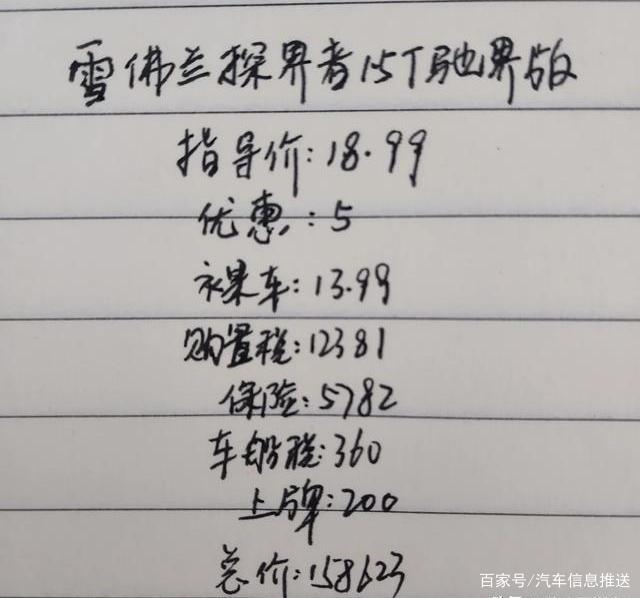 雪佛兰探界者15T驰界版
指导价:18.99
优惠:5
裸车:13.99
购置税:12381
保险:5782
车船税:360
上牌:200
总价:158623
百家号/汽车信息推送